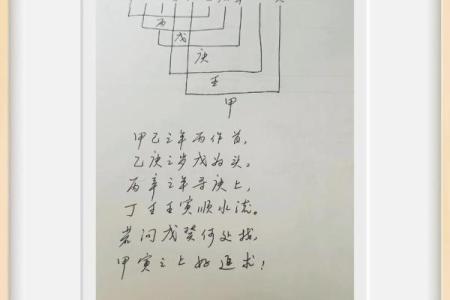 丙
戊
庚
壬
甲
甲己之年丙作首,
乙庚之岁戊为头,
丙辛之年寻庚上,
丁壬壬寅顺水流。
若问戊癸何处找,
甲寅之上好追求!